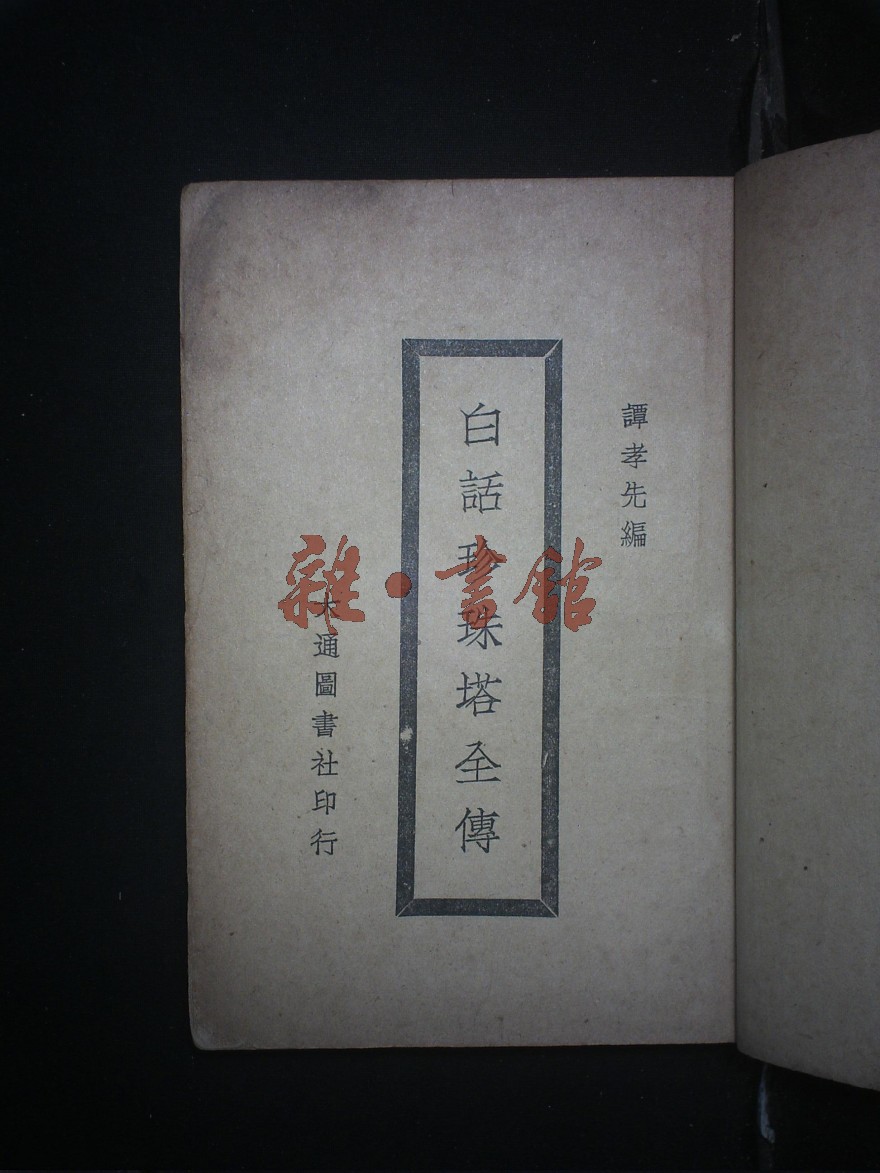 譚孝先編
白話珍珠塔全傳
大通圖書社印行
雜·書館